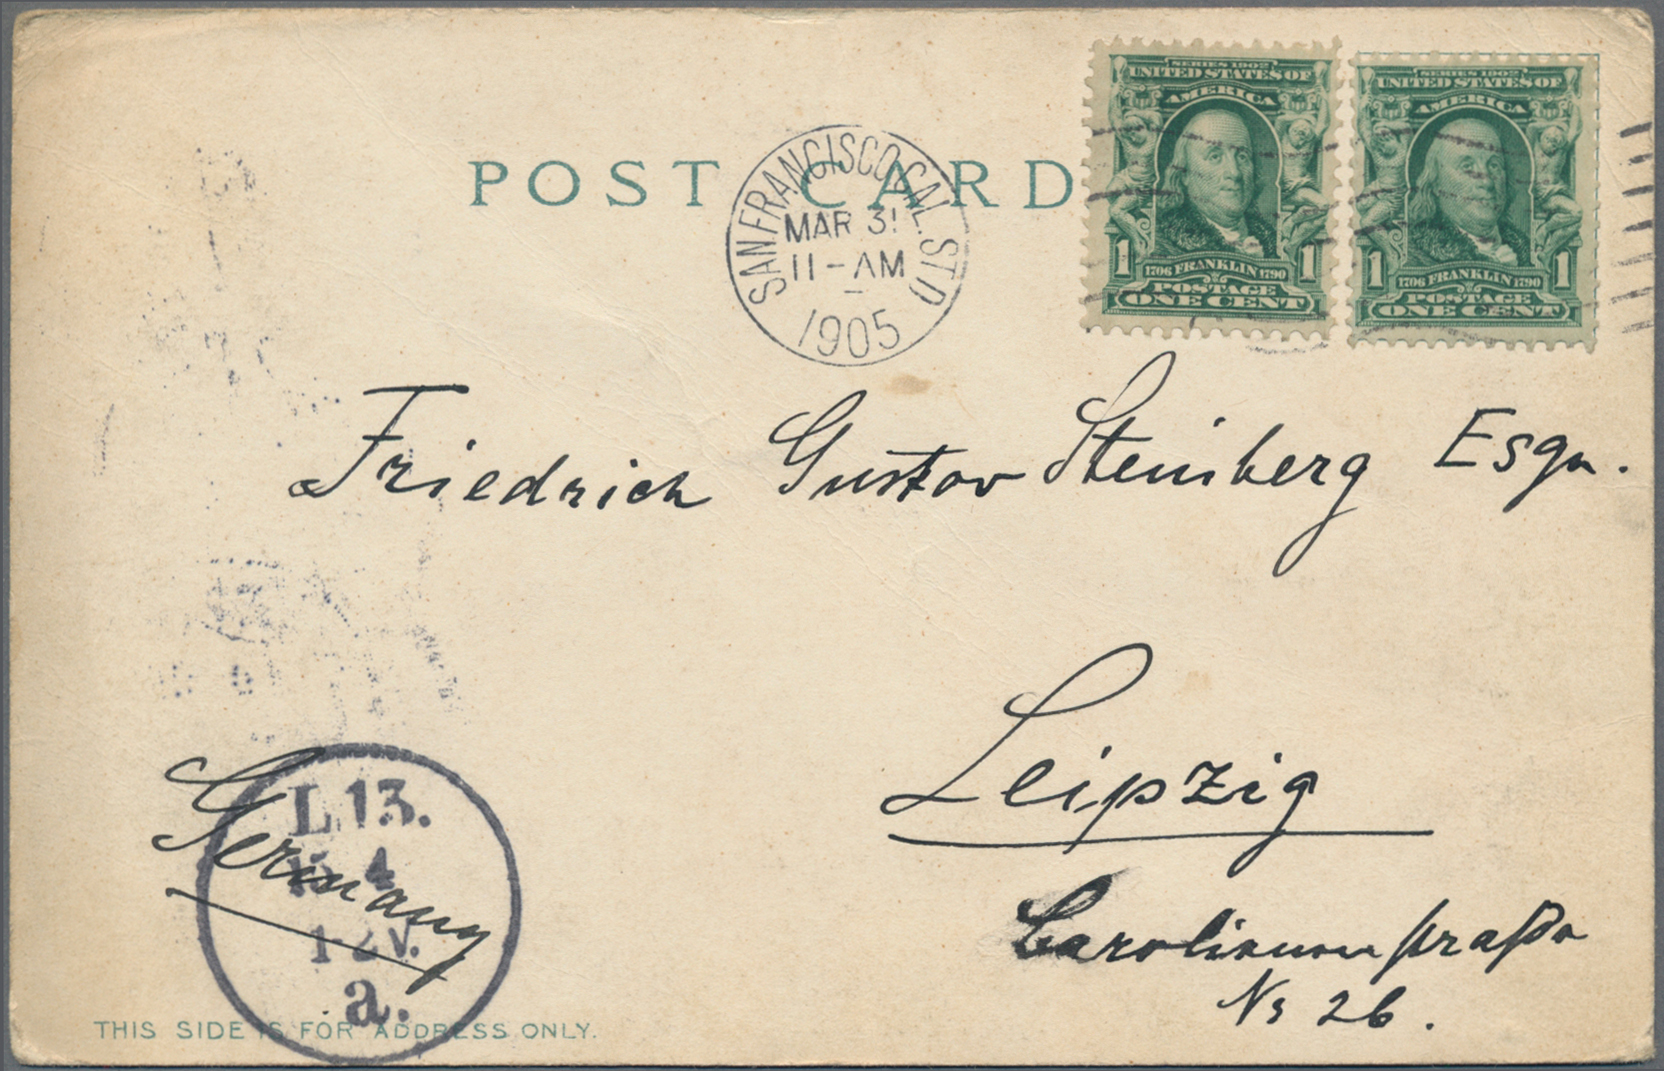 POST CARD
SAN FRANCISCO, CAL. ST'D
MAR 31
11-AM
1905
SERIES 1902
UNITED STATES OF
AMERICA
1 1706 FRANKLIN 1790 1
POSTAGE
ONE CENT
SERIES 1902
UNITED STATES OF
AMERICA
1 1706 FRANKLIN 1790 1
POSTAGE
ONE CENT
Friedrich Gustav Steinberg Esqr.
Leipzig
Germany
L 13.
4
1 2 V.
a.
No 26.
THIS SIDE IS FOR ADDRESS ONLY.